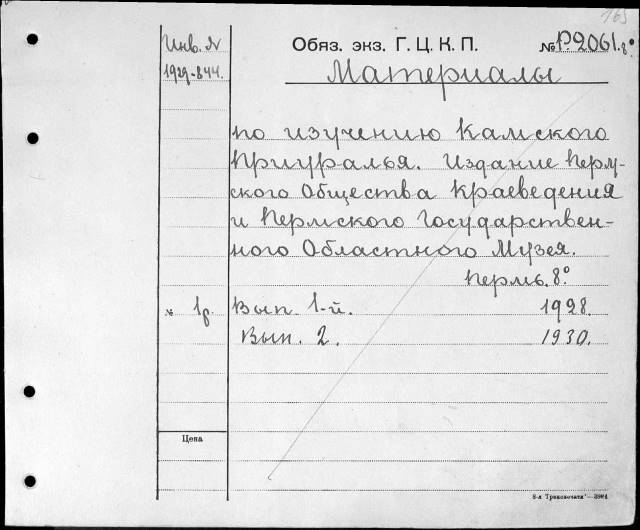 165
Инв. №
1929-844.
Обяз. экз. Г. Ц. К. П.
№ P2061. 8°
Материалы
по изучению Камского
Приуралья. Издание Перм-
ского Общества Краеведения
и Пермского Государствен-
ного Областного Музея.
Пермь. 8°
№ 1р. Вып. 1-й. 1928.
Вып. 2. 1930.
Цена
8-я Транспечати—3984